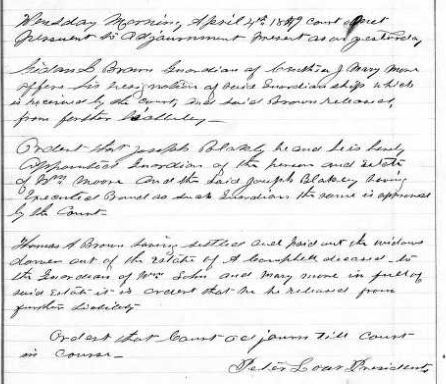 Wensday Morning April 4th 1849 Court met
persuent to adjournment present as on yesterday
L Brown Guardian of J Mary More
offers his resignation of said Guardian ship which
is received by the Court, and said Brown released,
from further liability —
Ordert that Joseph Blakely be and he is herby
Appointed Guardian of the person and estate
of Wm Moore And the said Joseph Blakley having
Executed Bond as such Guardian the same is approved
by the Court
Thomas A Brown having settled and paid out the widows
dower out of the estate of A Campbell deceased to
the Guardian of Wm John and Mary more in full of
said estate it is ordert that he be released from
further liability
Ordert that Court adjourn till Court
in Course —
Peter President